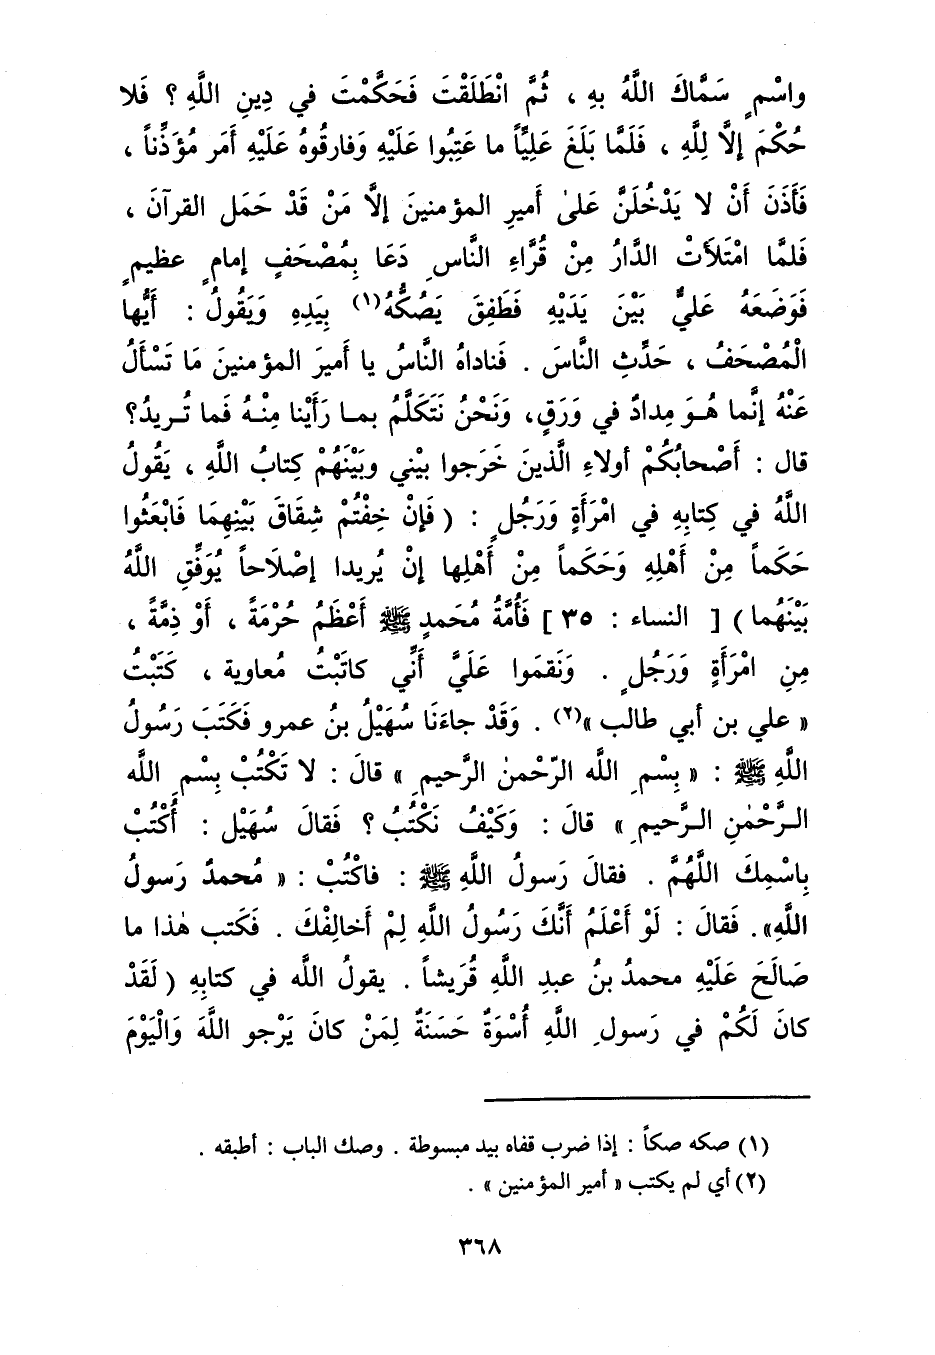 واسْمٍ سَمَّاكَ اللَّهُ بهِ ، ثُمَّ انْطَلَقْتَ فَحَكَّمْتَ في دِينِ اللَّهِ ؟ فَلا
حُكْمَ إلَّا لِلَّهِ ، فَلَمَّا بَلَغَ عَلِيًّا ما عَتِبُوا عَلَيْهِ وَفارقُوهُ عَلَيْهِ أَمَر مُؤَذِّناً ،
فَأَذَنَ أَنْ لا يَدْخُلَنَّ عَلىٰ أَميرِ المؤمنينَ إلَّا مَنْ قَدْ حَمَل القرآنَ ،
فَلمَّا امْتَلَأَتْ الدَّارُ مِنْ قُرَّاءِ النَّاسِ دَعَا بِمُصْحَفٍ إمامٍ عظيمٍ
فَوَضَعَهُ عَليٌّ بَيْنَ يَدَيْهِ فَطَفِقَ يَصُكُّهُ(١) بِيَدِهِ وَيَقُولُ : أَيُّها
الْمُصْحَفُ ، حَدِّثِ النَّاسَ . فَناداهُ النَّاسُ يا أَميرَ المؤمنينَ مَا تَسْأَلُ
عَنْهُ إنَّما هُوَ مِدادٌ في وَرَقٍ، وَنَحْنُ نَتَكَلَّمُ بما رَأَيْنا مِنْهُ فَما تُريدُ؟
قال : أَصْحابُكُمْ أولاءِ الَّذينَ خَرَجوا بيْني وبَيْنَهُمْ كِتابُ اللَّهِ ، يَقُولُ
اللَّهُ في كِتابِهِ في امْرَأَةٍ وَرَجُلٍ : ( فَإنْ خِفْتُمْ شِقَاقَ بَيْنِهِمَا فَابْعَثُوا
حَكَماً مِنْ أَهْلِهِ وَحَكَماً مِنْ أَهْلِها إنْ يُريدا إصْلَاحاً يُوَفِّقِ اللَّهُ
بَيْنَهُما ) [ النساء : ٣٥ ] فَأُمَّةُ مُحَمدٍ ﷺ أَعْظَمُ حُرْمَةً ، أَوْ ذِمَّةً ،
مِنِ امْرَأَةٍ وَرَجُلٍ . وَنَقمَوا عَلَيَّ أَنِّي كاتَبْتُ مُعاوية ، كَتَبْتُ
« علي بن أبي طالب »(٢) . وَقَدْ جاءَنَا سُهَيْلُ بنُ عمرو فَكَتَبَ رَسُولُ
اللَّهِ ﷺ : « بِسْمِ اللَّه الرّحْمنٰ الرَّحيمِ » قالَ : لا تَكْتُبْ بِسْمِ اللَّه
الرَّحْمٰنِ الرَّحيمِ » قالَ : وَكَيْفُ نَكْتُبُ ؟ فَقالَ سُهَيْل : أُكْتُبْ
بِاسْمِكَ اللَّهُمَّ . فقالَ رَسولُ اللَّهِ ﷺ : فاكْتُبْ : « مُحمدٌ رَسولُ
اللَّهِ». فَقالَ : لَوْ أَعْلَمُ أَنَّكَ رَسُولُ اللَّهِ لمْ أَخالِفْكَ . فَكَتب هٰذا ما
صَالَحَ عَلَيْهِ محمدُ بنُ عبدِ اللَّهِ قُرَيشاً . يقولُ اللَّه في كتابِهِ ( لَقَدْ
كانَ لَكُمْ في رَسولِ اللَّهِ أُسْوَةٌ حَسَنَةٌ لِمَنْ كانَ يَرْجو اللَّهَ وَالْيَوْمَ
(١) صكه صكاً : إذا ضرب قفاه بيد مبسوطة . وصك الباب : أطبقه .
(٢) أي لم يكتب « أمير المؤمنين » .
٣٦٨